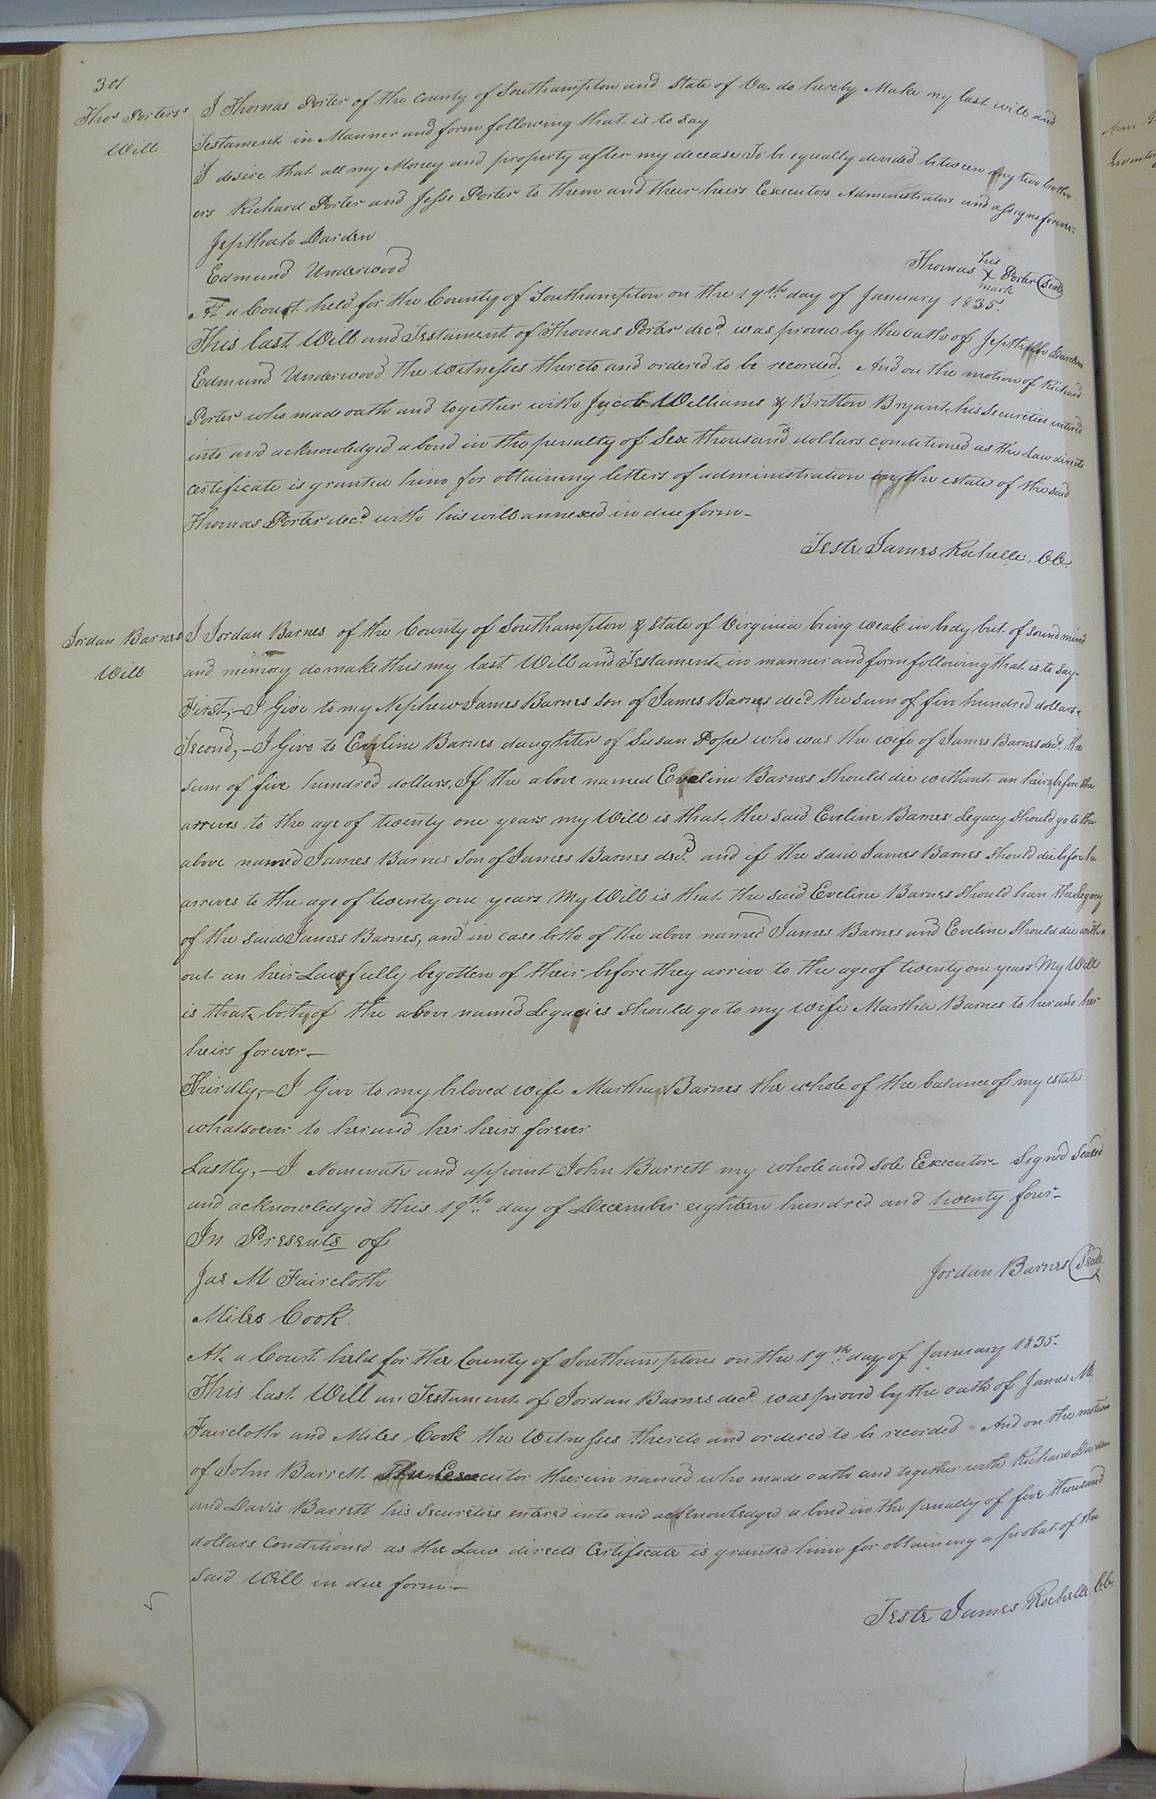 301
Thos Porters
Will
I Thomas Porter of the county of Southampton and State of Va. do hereby Make my last will and
Testament in Manner and form following that is to say
I desire that all my Money and property after my decease To be equally divided between my two broth
ers Richard Porter and Jesse Porter to them and their heirs Executors Administrators and assigns forever
Jepthah Darden
Edmund Underwood
Thomas his X mark Porter (Seal)
At a Court held for the County of Southampton on the 19th day of January 1835.
This last Will and Testament of Thomas Porter decd. was proved by the oaths of Jepthah Darden
Edmund Underwood the witnesses thereto and ordered to be recorded. And on the motion of Richard
Porter who made oath and together with Jacob Williams & Britton Bryant his securities entered
into and acknowledged a bond in the penalty of Six thousand dollars conditioned as the Law directs
certificate is granted him for obtaining letters of administration on the estate of the said
Thomas Porter decd. with his will annexed in due form—
Teste James Rochelle. CC.
Jordan Barnes
Will
I Jordan Barnes of the County of Southampton & State of Virginia being weak in body but of sound mind
and memory do make this my last Will and Testament in manner and form following that is to say.
First,—I Give to my Nephew James Barnes son of James Barnes decd. the sum of five hundred dollars.
Second,—I Give to Eveline Barnes daughter of Susan Pope who was the wife of James Barnes decd. the
sum of five hundred dollars, If the above named Eveline Barnes should die without an heir before she
arrives to the age of twenty one years my Will is that the said Eveline Barnes Legacy should go to the
above named James Barnes son of James Barnes decd. and if the said James Barnes should die before he
arrives to the age of twenty one years My Will is that the said Eveline Barnes should have the Legacy
of the said James Barnes, and in case both of the above named James Barnes and Eveline should die with
out an heir Lawfully begotten of their before they arrive to the age of twenty one years My Will
is that both of the above named Legacies should go to my wife Martha Barnes to her and her
heirs forever—
Thirdly,—I Give to my beloved wife Martha Barnes the whole of the balance of my estate
whatsoever to her and her heirs forever
Lastly,—I Nominate and appoint John Barrett my whole and sole Executor. Signed Sealed
and acknowledged this 19th day of December eighteen hundred and twenty four—
In Presents of
Jas M Faircloth
Jordan Barnes (Seal)
Miles Cook.
At a Court held for the County of Southampton on the 19th day of January 1835.
This last Will an Testament of Jordan Barnes decd. was proved by the oath of James M.
Faircloth and Miles Cook the Witnesses thereto and ordered to be recorded And on the motion
of John Barrett The Executor therein named who made oath and together with Richard Darden
and Davis Barrett his Securities entered into and acknowledged a bond in the penalty of five thousand
dollars Conditioned as the Law directs Certificate is granted him for obtaining a probat of the
said Will in due form—
Teste James Rochelle CC.